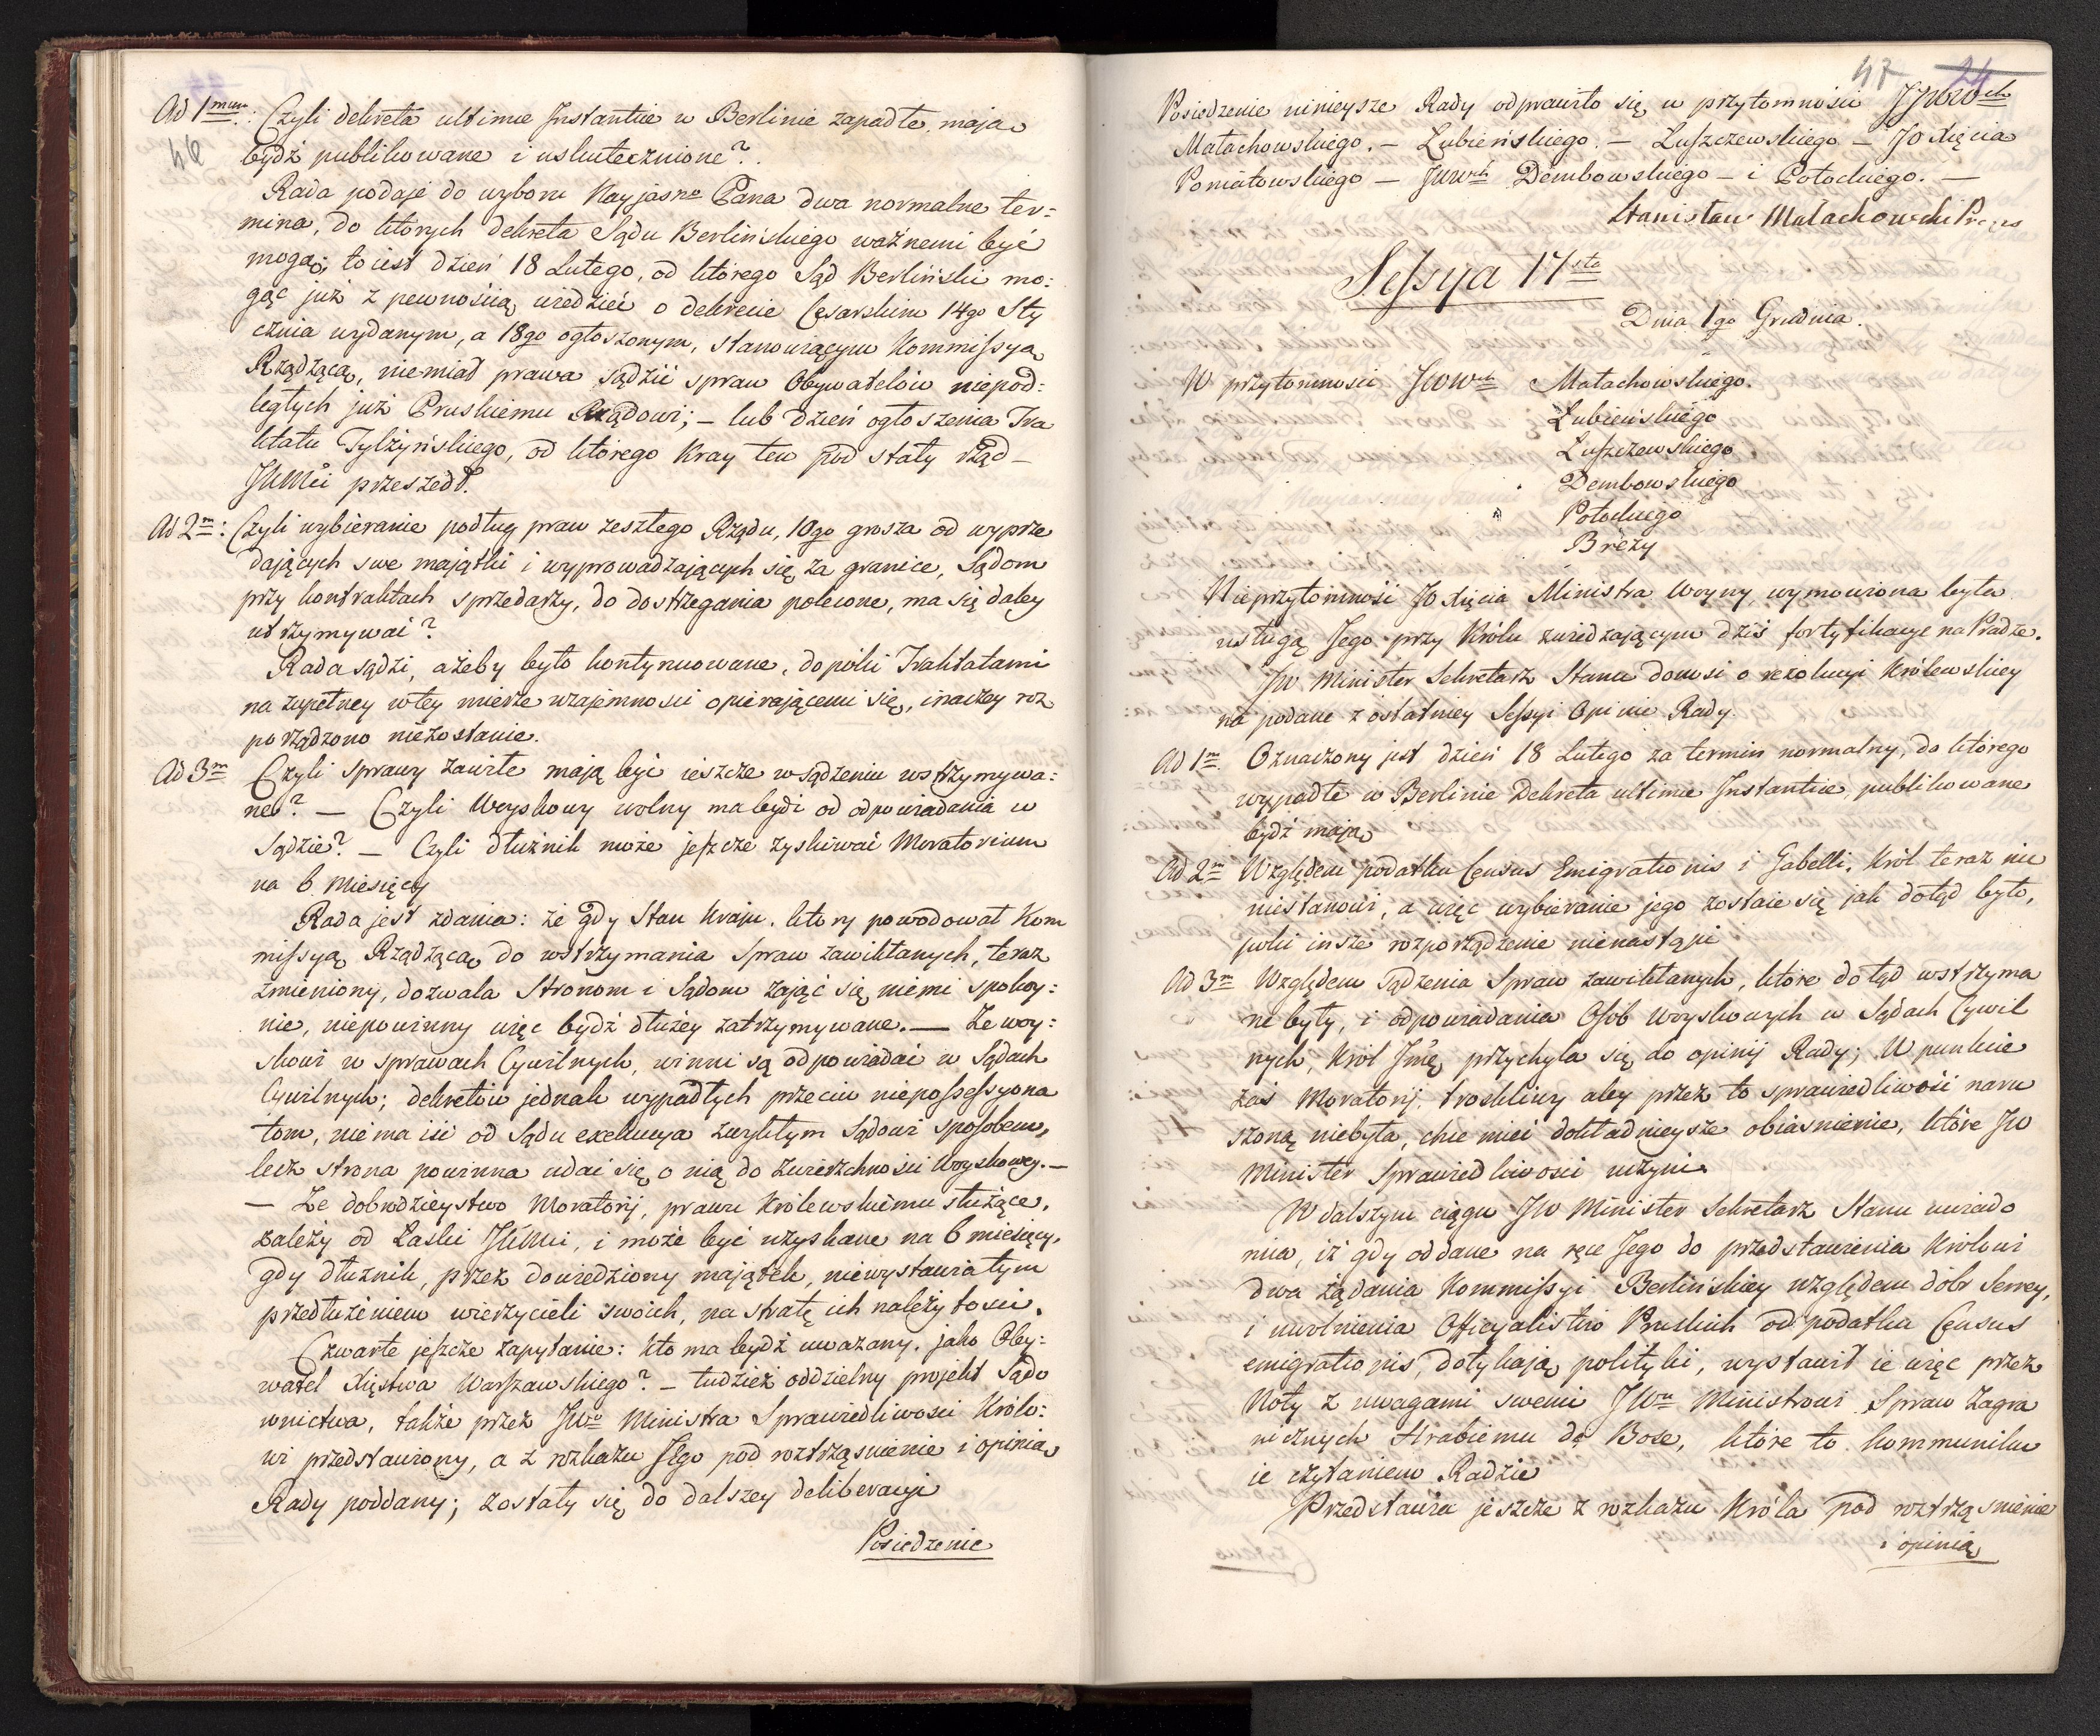 Ad 1mum: Czyli dekreta ultimæ Instantiæ w Berlinie zapadłe, maja
46
bydź publikowane i uskutecznione?
Rada podaje do wyboru Nayjasno Pana dwa normalne ter:
mina, do których Dekreta Sądu Berlińskiego ważnemi być
mogą; to iest dzień 18 Lutego, od którego Sąd Berliński mo:
gąc już z pewnością wiedzieć o dekrecie Cesarskim 14go Sty
cznia wydanym, a 18go ogłoszonym, stanowiącym Kommissyą
Rządzącą, niemiał prawa sądzić spraw Obywatelów niepod:
ległych już Pruskiemu Rządowi; – lub dzień ogłoszenia Tra
ktatu Tylżyńskiego, od którego Kray ten pod stały rząd –
JKMci przeszedł.
Ad 2m: Czyli wybieranie podług praw zeszłego Rządu, 10go grosza od wyprze
dających swe majątki i wyprowadzających się za granice, Sądom
przy kontraktach sprzedaży, do dostrzegania polecone, ma się daley
utrzymywać?
Rada sądzi, ażeby było kontynuowane, dopóki Traktatami
na zupełney w tey mierze wzajemności opierającemi się, inaczey roz
porządzono niezostanie.
Ad 3m Czyli sprawy zawiłe mają być ieszcze w sądzeniu wstrzymywa:
ne? — Czyli Woyskowy wolny ma bydź od odpowiadania w
Sądzie? — Czyli dłużnik może jeszcze zyskiwać Moratorium
na 6 Miesięcy
Rada jest zdania: że gdy Stan Kraju, który powodował Kom
missyą Rządzącą do wstrzymania Spraw zawikłanych, teraz
zmieniony, dozwala Stronom i Sądom zająć się niemi spokoy:
nie, niepowinny więc bydź dłużey zatrzymywane. — Że woy:
skowi w sprawach Cywilnych, winni są odpowiadać w Sądach
Cywilnych; dekretów jednak wypadłych przeciw niepossessyona
tom, niema iść od Sądu exekucya zwykłym Sądowi sposobem,
lecz strona powinna udać się o nią do Zwierzchności Woyskowey. —
— Że dobrodzieystwo Moratorij, prawu Królewskiemu służące,
zależy od Łaski JKMci, i może być uzyskane na 6 miesięcy,
gdy dłużnik, przez dowiedziony majątek, niewystawia tym
przedłużeniem wierzycieli swoich, na stratę ich należytości.
Czwarte jeszcze zapytanie: kto ma bydź uważany, jako Oby:
watel Xięstwa Warszawskiego? – tudzież oddzielny projekt Sądo
wnictwa, także przez JWo Ministra Sprawiedliwości Królo:
wi przedstawiony, a z rozkazu Jego pod roztrząsnienie i opinią
Rady poddany; zostały się do dalszey deliberacyi
Posiedzenie
47 24
Posiedzenie ninieysze Rady odprawiło się w przytomności JJWWch
Małachowskiego. – Łubieńskiego. – Luszczewskiego – JO Xięcia
Poniatowskiego – JWWch Dembowskiego – i Potockiego. —
Stanisław Małachowski Prezes
Sessya 17sta
Dnia 1go Grudnia.
W przytomności JWWch Małachowskiego.
Łubieńskiego
Luszczewskiego
Dembowskiego
Potockiego
Brezy
Nieprzytomność JO Xięcia Ministra Woyny, wymowiona była
usługą Jego przy Królu zwiedzającym dziś fortyfikacye na Pradze.
JW Minister Sekretarz Stanu donosi o rezolucyi Królewskiey
na podane z ostatniey Sessyi Opinie Rady.
Ad 1m Oznaczony jest dzień 18 Lutego za termin normalny, do którego
wypadłe w Berlinie Dekreta ultimæ Instantiæ, publikowane
bydź mają
Ad 2m Względem podatku Census Emigrationis i Gabelli, Król teraz nic
niestanowi, a więc wybieranie jego zostaie się jak dotąd było,
poki insze rozporządzenie nienastąpi
Ad 3m Względem sądzenia Spraw zawikłanych, które dotąd wstrzyma
ne były, i odpowiadania Osób woyskowych w Sądach Cywil
nych, Król Jmć przychyla się do opinij Rady; W punkcie
zaś Moratorij, troskliwy aby przez to sprawiedliwość naru
szoną niebyła, chce mieć dokładnieysze obiasnienie, które JW
Minister Sprawiedliwości uczyni
W dalszym ciągu JW Minister Sekretarz Stanu uwiado
mia, iż gdy oddane na ręce Jego do przedstawienia Królowi
dwa żądania Kommissyi Berlińskiey względem dóbr Serrey,
i uwolnienia Officyalistów Pruskich od podatku Census
emigrationis, dotykają polityki, wystawił ie więc przez
Noty z uwagami swemi JWu Ministrowi Spraw Zagra
nicznych Hrabiemu de Bose, które to kommuniku
ie czytaniem Radzie
Przedstawia jeszcze z rozkazu Króla pod roztrząsnienie
i opinią